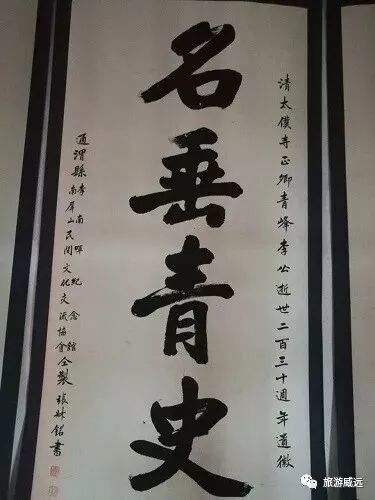 清太僕寺正卿青峰李公逝世二百三十週年道徽
名垂青史
通渭縣
李南暉紀念館
南屏山民间文化交流協會
仝製
張林銘書
旅游威远